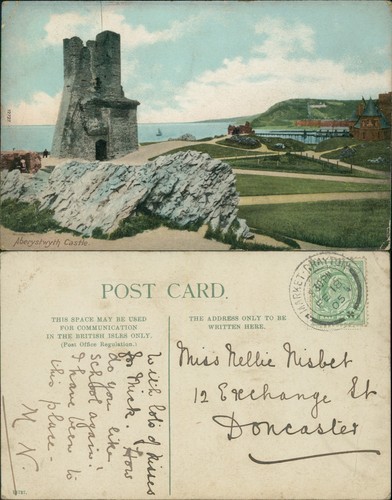 Aberystwyth Castle.
POST CARD.
THIS SPACE MAY BE USED
FOR COMMUNICATION
IN THE BRITISH ISLES ONLY.
(Post Office Regulation.)
THE ADDRESS ONLY TO BE
WRITTEN HERE.
MARKET-DRAYTON
05
With lots of kisses
for Mick. How
do you like
school again?
I have been to
this place -
M N.
Miss Nellie Nisbet
12 Exchange St
Doncaster